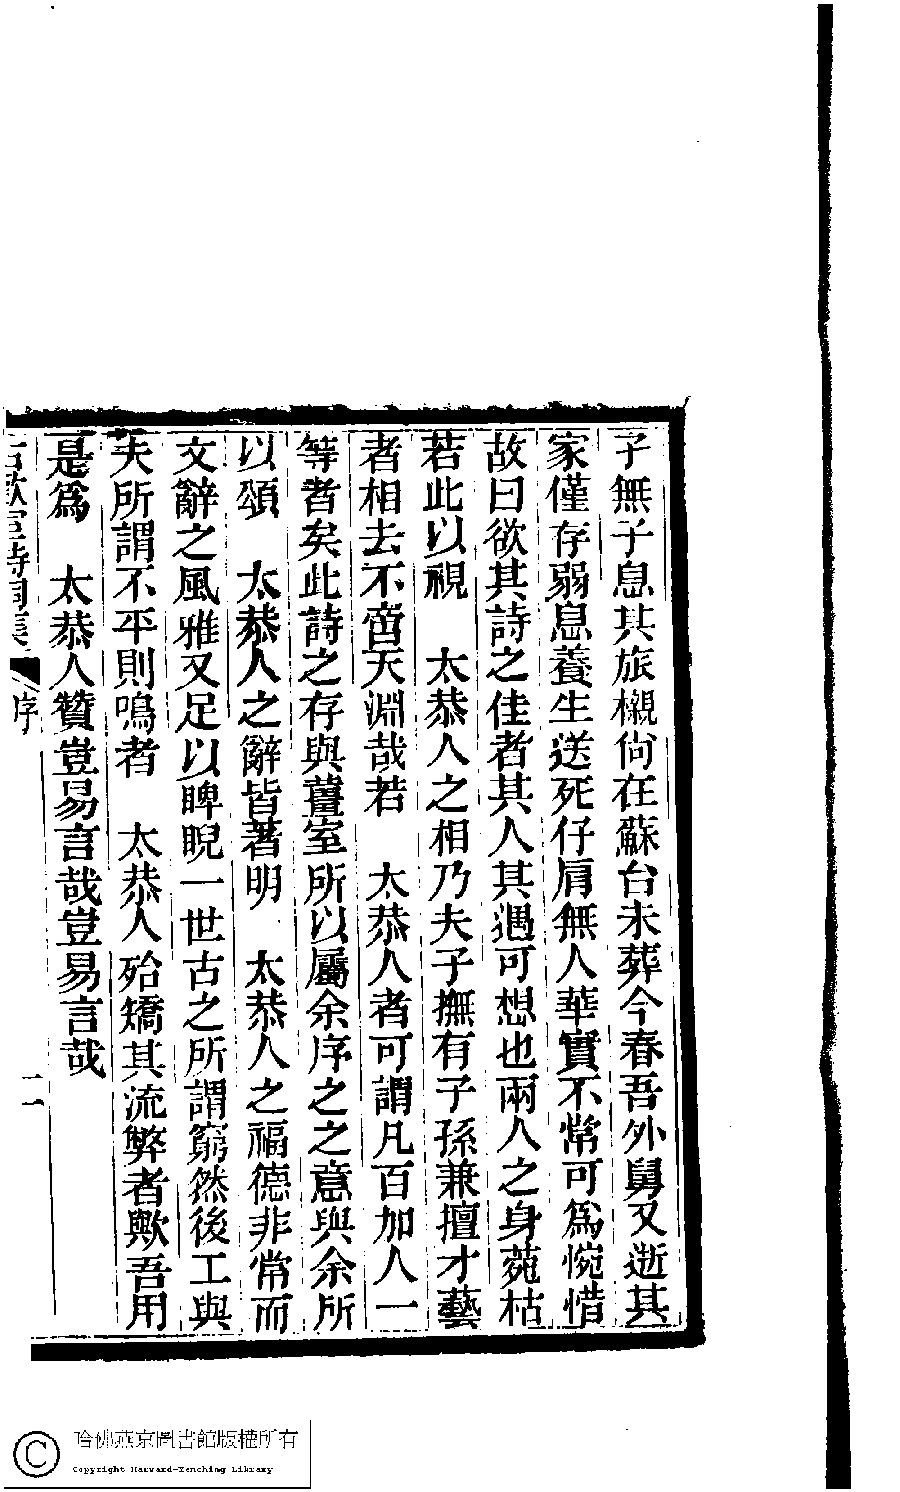 子無子息其旅櫬尙在蘇台未葬今春吾外舅又逝其
家僅存弱息養生送死仔肩無人華實不常可爲惋惜
故曰欲其詩之佳者其人其遇可想也兩人之身菀枯
若此以視　太恭人之相乃夫子撫有子孫兼擅才藝
者相去不啻天淵哉若　太恭人者可謂凡百加人一
等者矣此詩之存與薑室所以屬余序之之意與余所
以頌　太恭人之辭皆著明　太恭人之福德非常而
文辭之風雅又足以睥睨一世古之所謂窮然後工與
夫所謂不平則鳴者　太恭人殆矯其流弊者歟吾用
是爲　太恭人贊豈易言哉豈易言哉
序
二
哈佛燕京圖書館版權所有
Copyright Harvard-Yenching Library